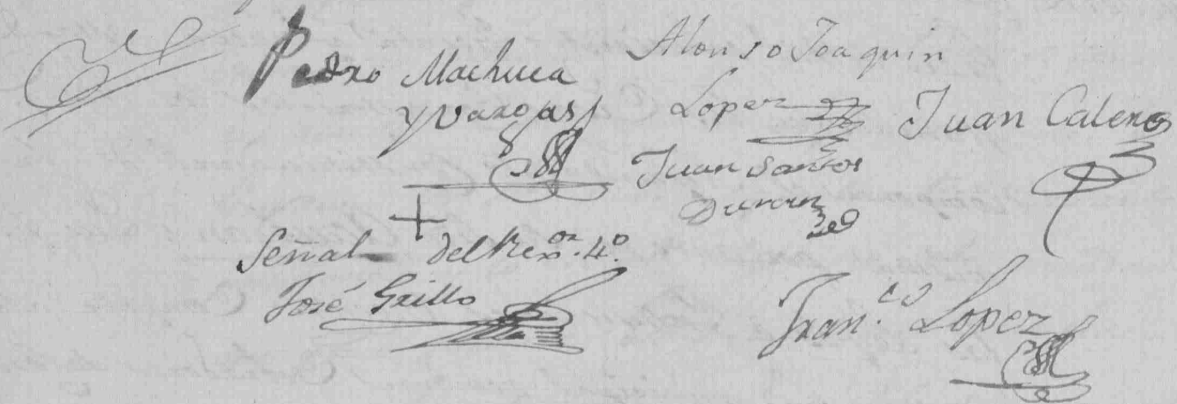 Pedro Machuca
y Vargas
Alonso Joaquin
Lopez
Juan Calero
Juan Santos
Duran
+
Señal del Re^or. 4^o.
José Grillo
Fran.^co Lopez